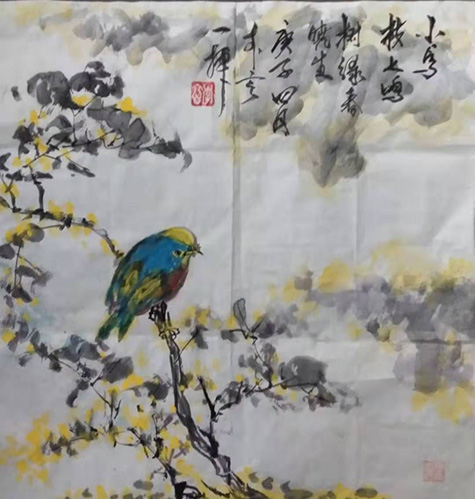 小鸟
枝上鸣
树绿春
晓生
庚子四月
于京
一挥